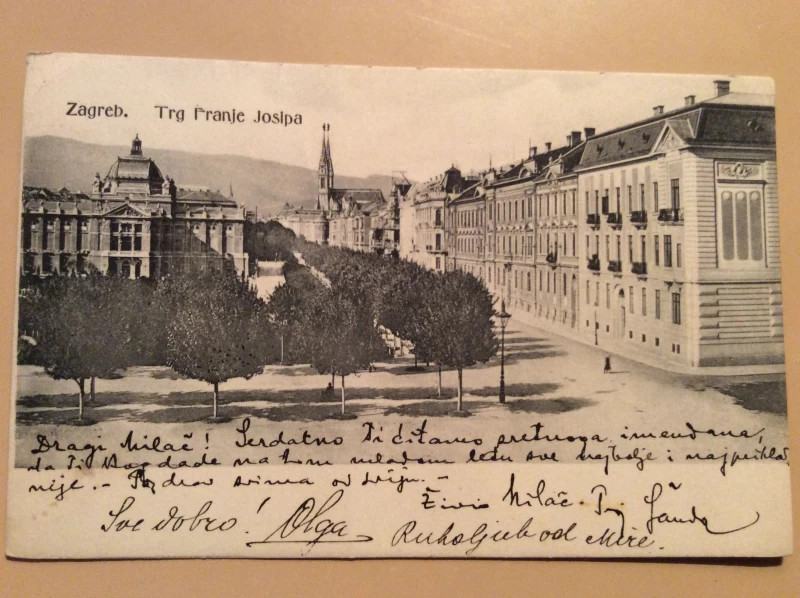 Zagreb. Trg Franje Josipa
Dragi Milač! Serdatno Ti čitamo sretnoga imendana,
da Ti Bog dade na tom mladom letu sve najbolje i
nije. - Pozdrav svima od sviju. -
Živio Milač.
Sve dobro! Olga
Rukoljub od Mire.